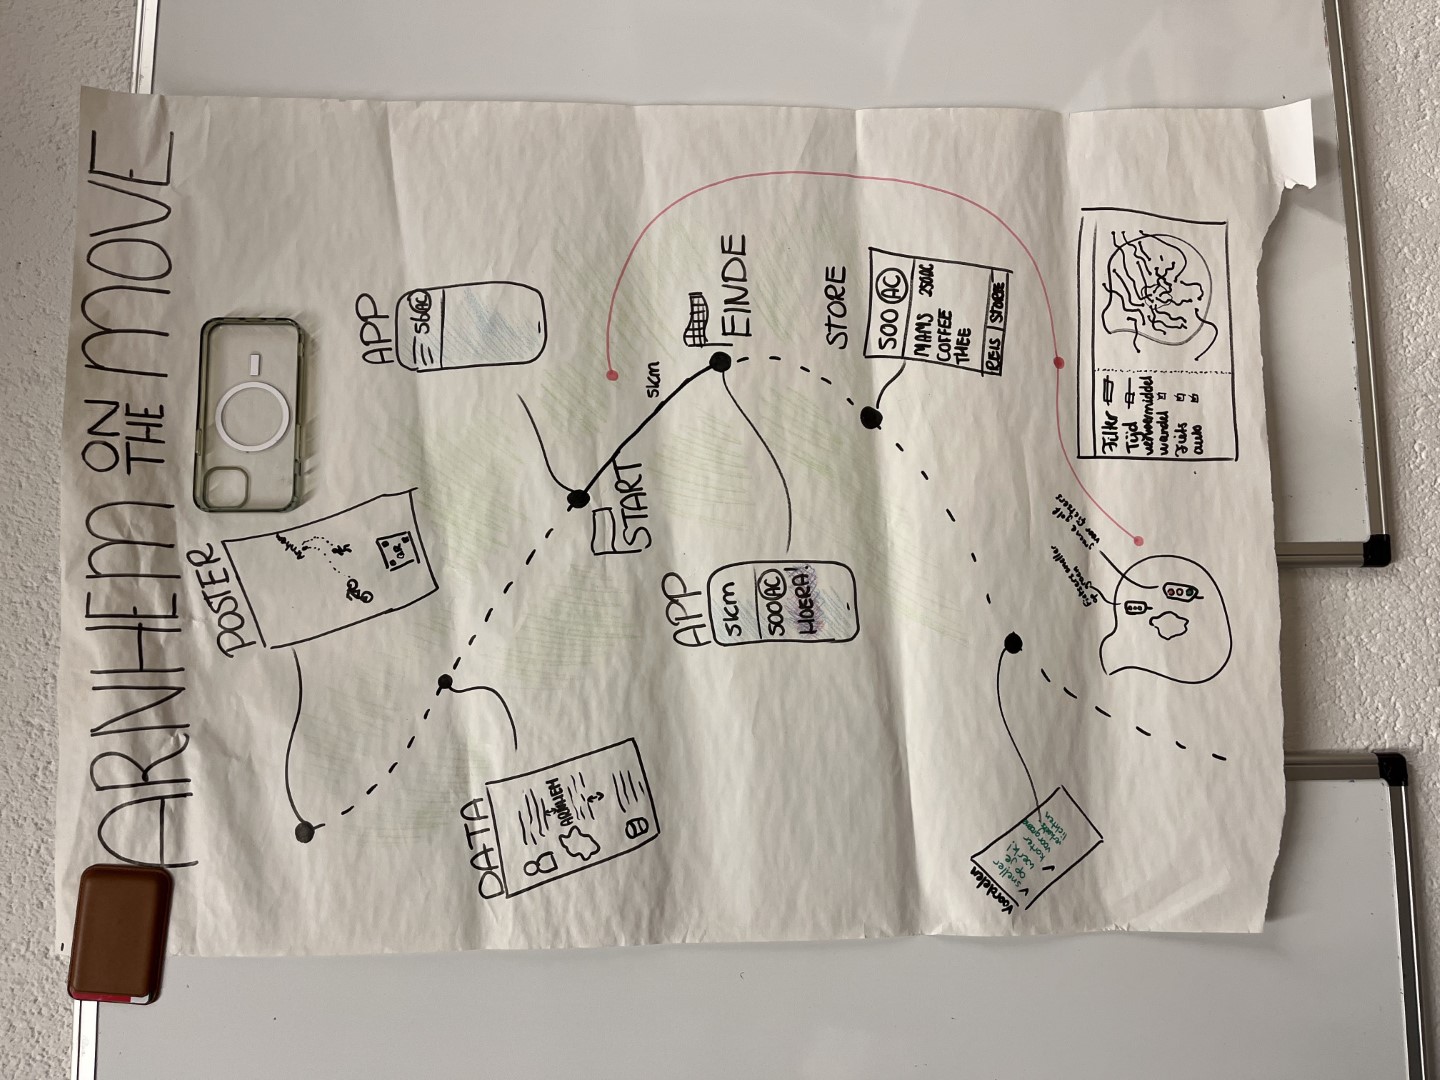 ARNHEM ON THE MOVE
POSTER
Arnhem
QR
APP
56 AC
DATA
ARNHEM
START
5km
APP
5km
500 AC
HOERA!
EINDE
STORE
500 AC
MAMS 250AC
COFFEE
THEE
REIS STORE
Voordelen
✓ sneller
op je
werk!
✓ korter
voor groene
verkeers-
lichten
Fietsers sneller
groen
groene golf
voor fietsers
Filter
Tijd
vervoermiddel
wandel
Fiets
auto